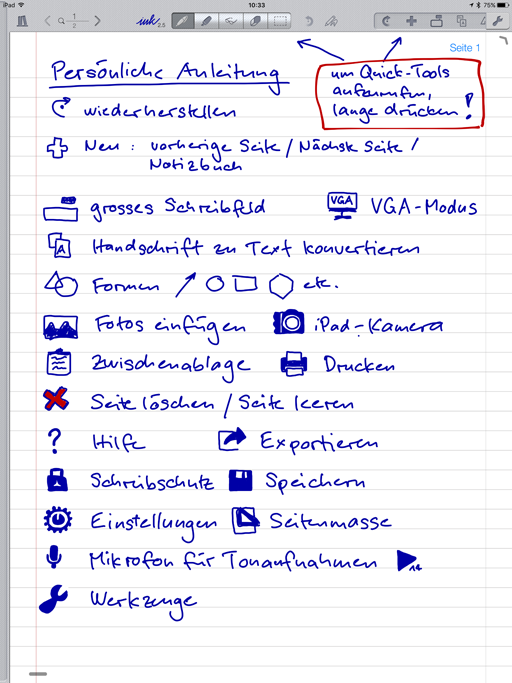 iPad
10:33
75%
1
2
ink 2.5
Seite 1
Persönliche Anleitung
um Quick-Tools
aufzurufen,
lange drücken!
wiederherstellen
Neu: vorherige Seite / Nächste Seite /
Notizbuch
grosses Schreibfeld
VGA
VGA-Modus
A
Handschrift zu Text konvertieren
Formen etc.
Fotos einfügen
iPad-Kamera
Zwischenablage
Drucken
Seite löschen / Seite leeren
? Hilfe
Exportieren
Schreibschutz
Speichern
Einstellungen
Seitenmasse
Mikrofon für Tonaufnahmen
Werkzeuge